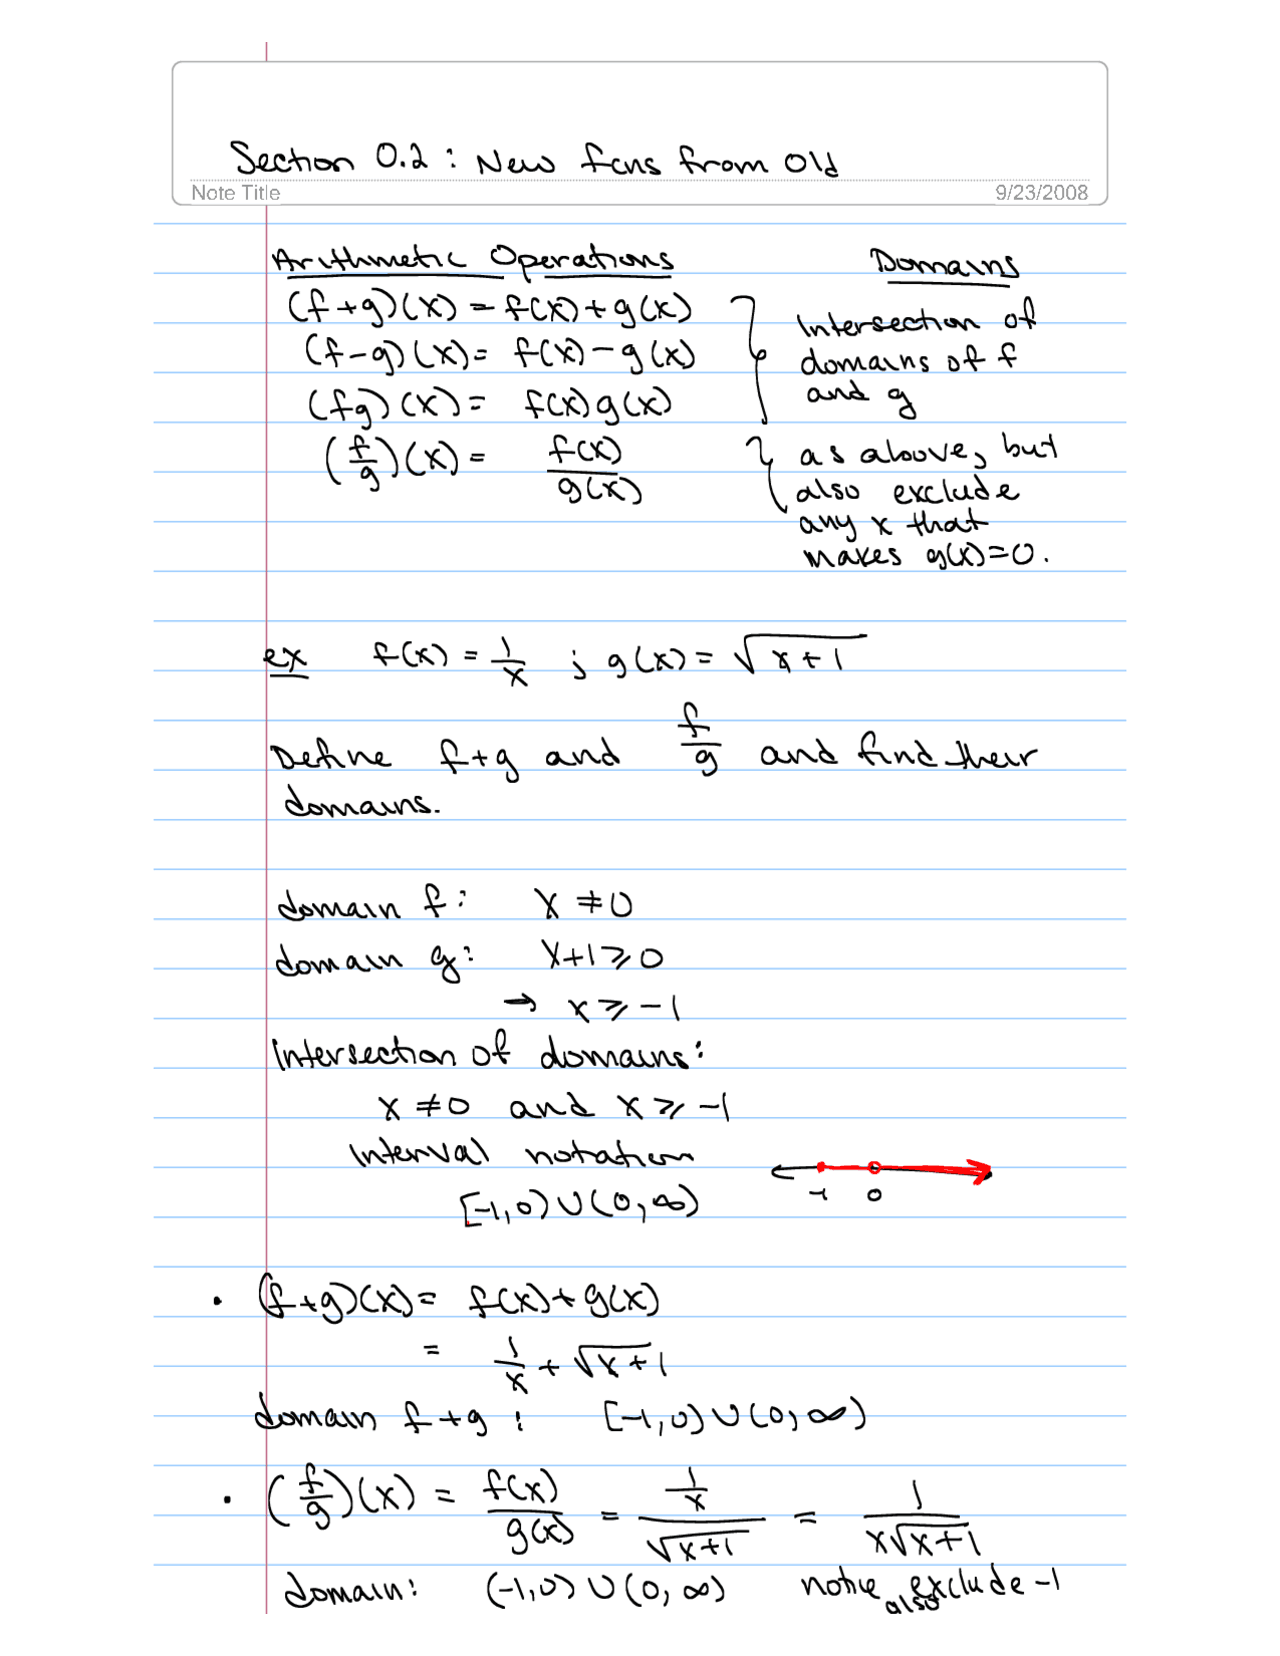 Section 0.2: New fcns from Old
Note Title 9/23/2008
Arithmetic Operations Domains
(f+g)(x) = f(x)+g(x)
(f-g)(x) = f(x)-g(x)
(fg)(x) = f(x)g(x)
(f/g)(x) = f(x)/g(x)
Intersection of
domains of f
and g
as above, but
also exclude
any x that
makes g(x)=0.
ex f(x) = 1/x ; g(x) = √(x+1)
Define f+g and f/g and find their
domains.
domain f: x ≠ 0
domain g: x+1 ≥ 0
→ x ≥ -1
Intersection of domains:
x ≠ 0 and x ≥ -1
Interval notation
-1 0
[-1,0) ∪ (0, ∞)
• (f+g)(x) = f(x)+g(x)
= 1/x + √(x+1)
domain f+g : [-1,0) ∪ (0, ∞)
• (f/g)(x) = f(x)/g(x) = (1/x)/√(x+1) = 1/(x√(x+1))
domain: (-1,0) ∪ (0, ∞) notice also exclude -1